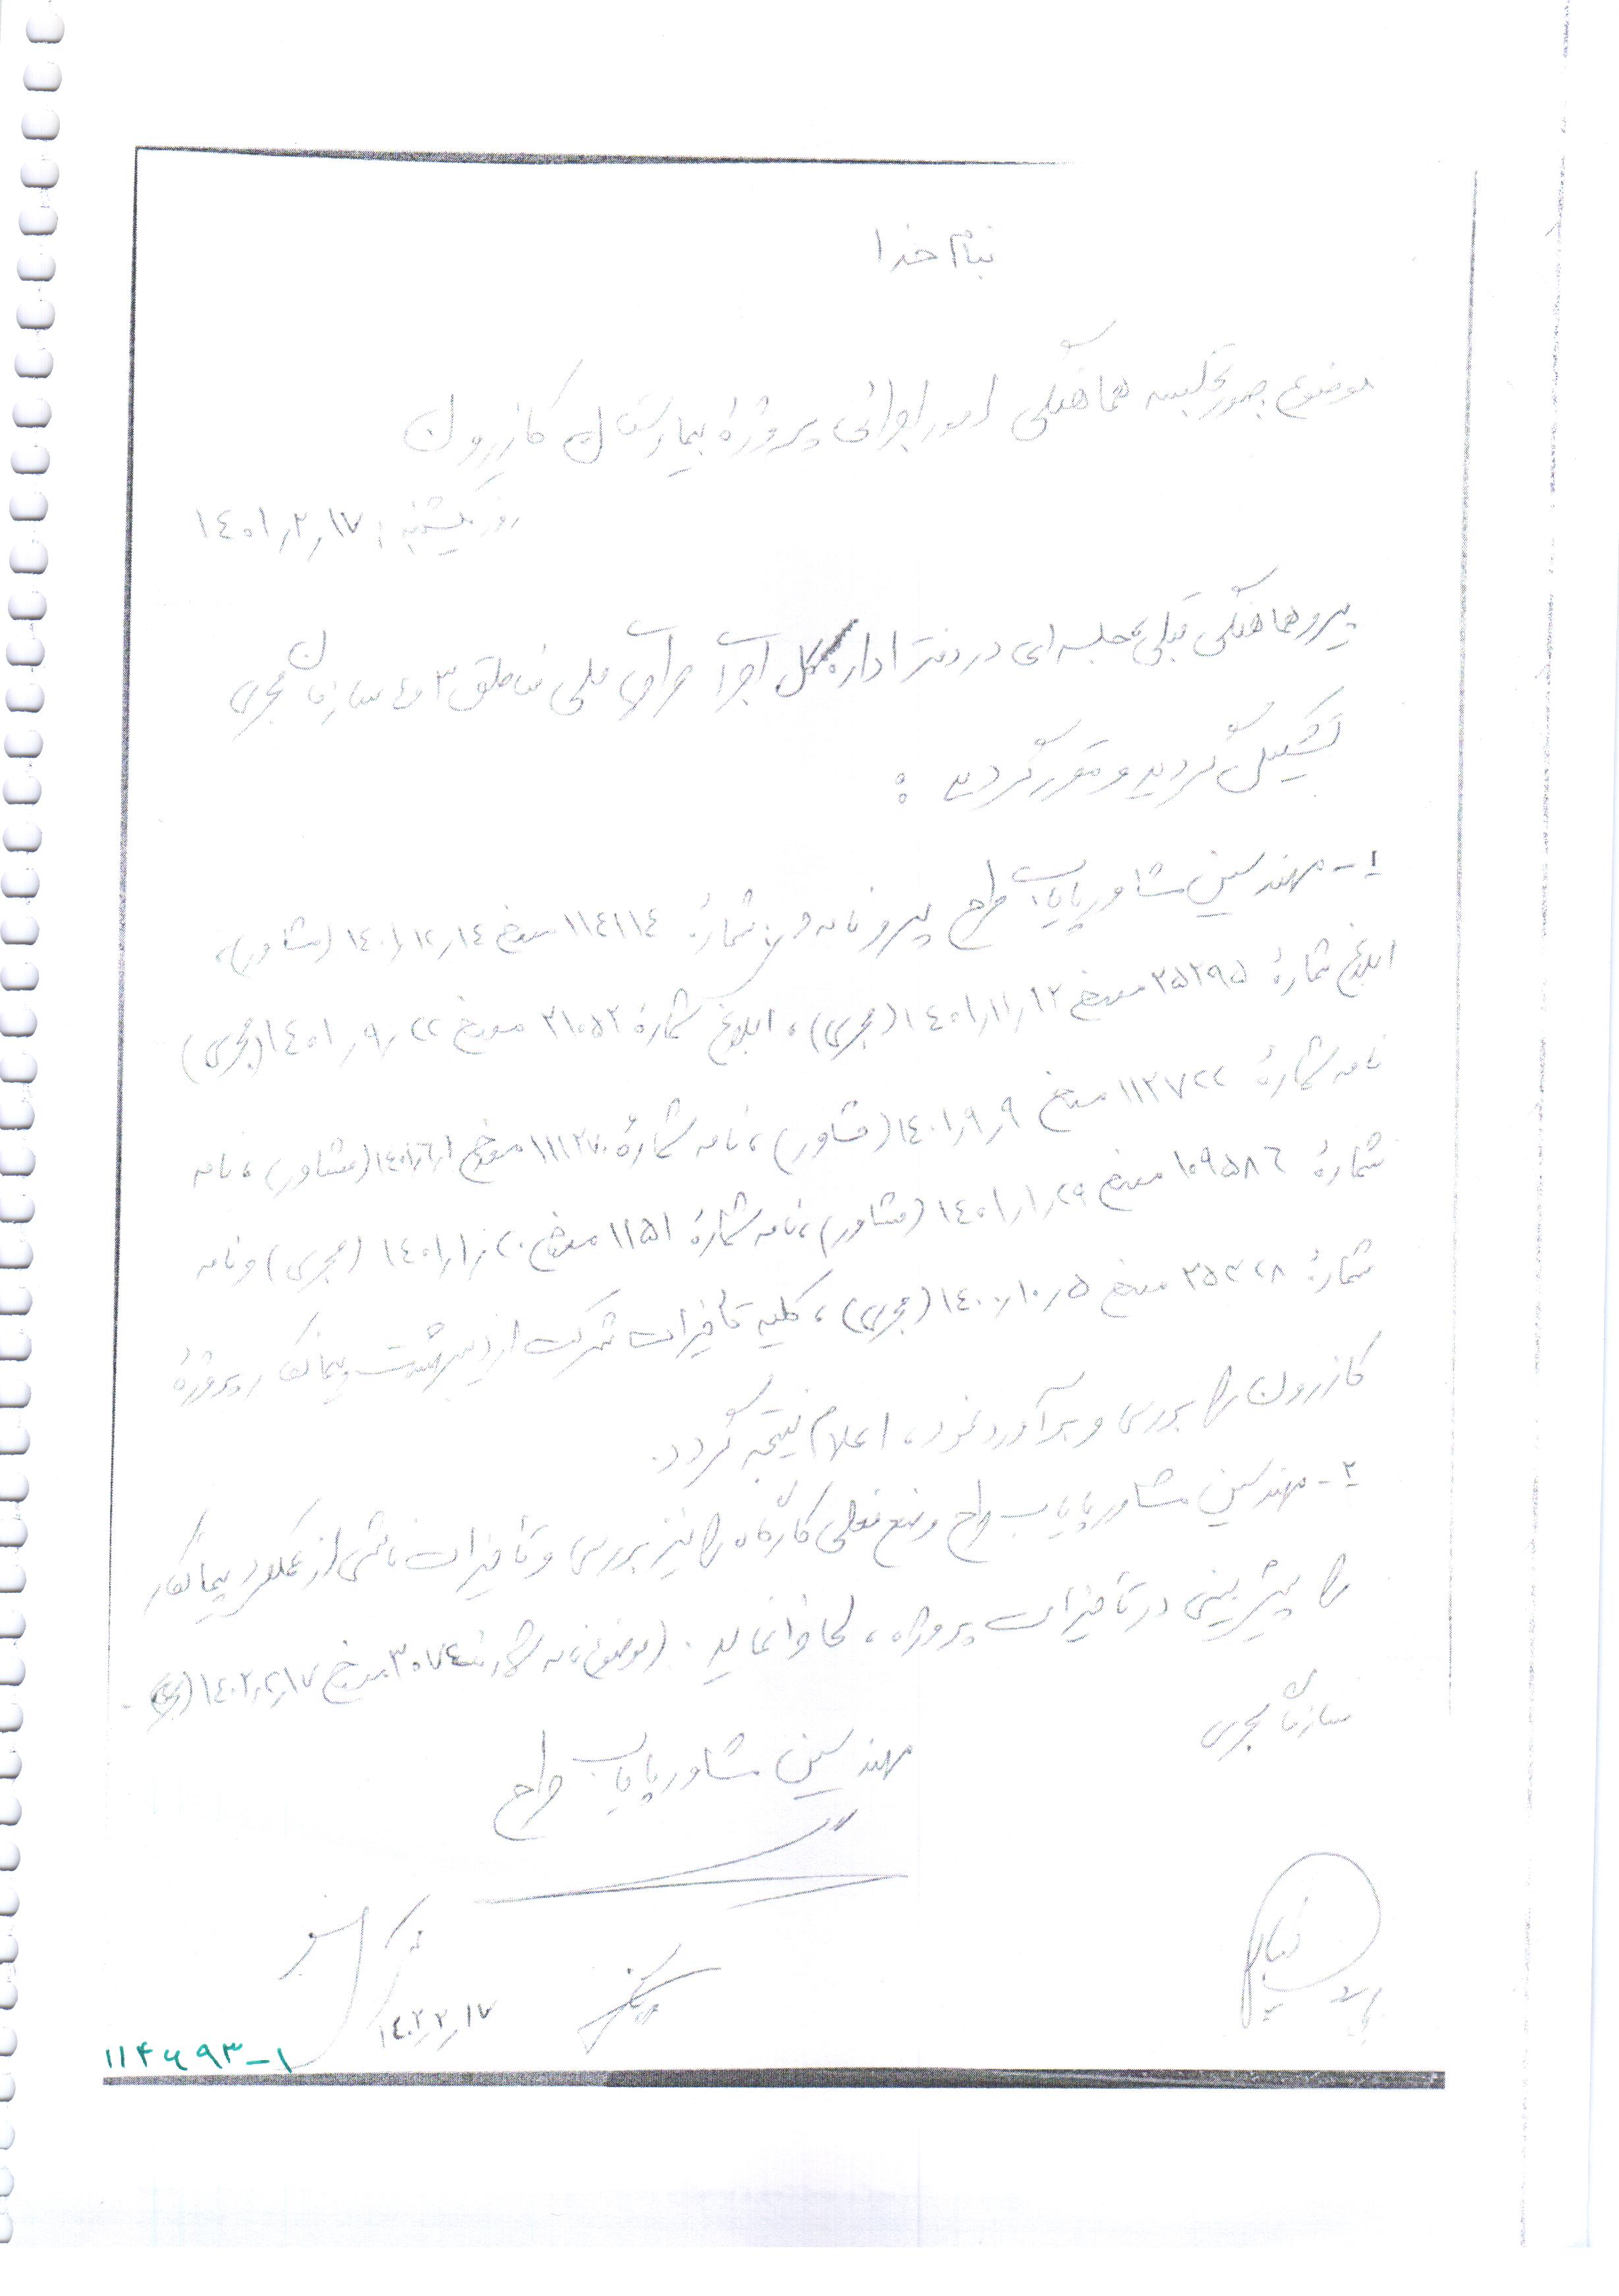 بنام خدا
موضوع: صورتجلسه هماهنگی امور اجرائی پروژهٔ بیمارستان کازرون
روز یکشنبه: ۱۴۰۱/۲/۱۷
پیرو هماهنگی قبلی جلسه‌ای در دفتر اداره کل اجرای طرحهای ملی مناطق ۳ و ۴ سازمان مجری
تشکیل گردید و مقرر گردید:
۱- مهندسین مشاور پایاب طرح پیرو نامه شمارهٔ ۱۱۴۱۱۴ مورخ ۱۴۰۱/۱۲/۱۴ (مشاور)،
ابلاغ شمارهٔ ۲۵۲۹۵ مورخ ۱۴۰۱/۱۱/۱۲ (مجری)، ابلاغ شمارهٔ ۲۱۰۵۲ مورخ ۱۴۰۱/۹/۲۲ (مجری)
نامه شمارهٔ ۱۱۲۷۲۲ مورخ ۱۴۰۱/۹/۹ (مشاور)، نامه شمارهٔ ۱۱۱۲۷۰ مورخ ۱۴۰۱/۶/۱ (مشاور)، نامه
شمارهٔ ۱۰۹۵۸۶ مورخ ۱۴۰۱/۱/۲۹ (مشاور)، نامه شمارهٔ ۱۱۵۱ مورخ ۱۴۰۱/۱/۲۰ (مجری) و نامه
شمارهٔ ۲۵۲۲۸ مورخ ۱۴۰۰/۱۰/۵ (مجری)، کلیه تأخیرات شرکت اردیبهشت پیمانکار پروژهٔ
کازرون را بررسی و برآورد نموده، اعلام نتیجه گردد.
۲- مهندسین مشاور پایاب طرح وضع فعلی کارگاه را نیز بررسی و تأخیرات ناشی از عملکرد پیمانکار
را پیش‌بینی در تأخیرات پروژه، لحاظ نماید. (موضوع نامه شماره ۳۰۷۴ مورخ ۱۴۰۲/۲/۱۷ (مجری)
سازمان مجری
مهندسین مشاور پایاب طرح
۱۴۰۲/۲/۱۷
۱۱۴۶۹۳-۱